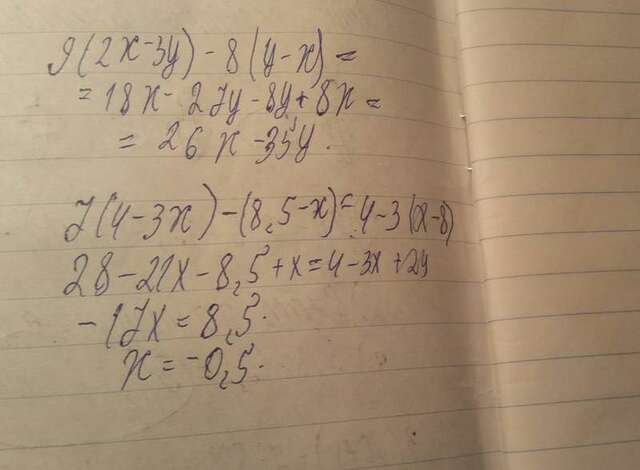 9(2x-3y)-8(y-x)=
=18x-27y-8y+8x=
=26x-35y.
7(4-3x)-(8,5-x)=4-3(x-8)
28-21x-8,5+x=4-3x+24
-17x=8,5.
x=-0,5.